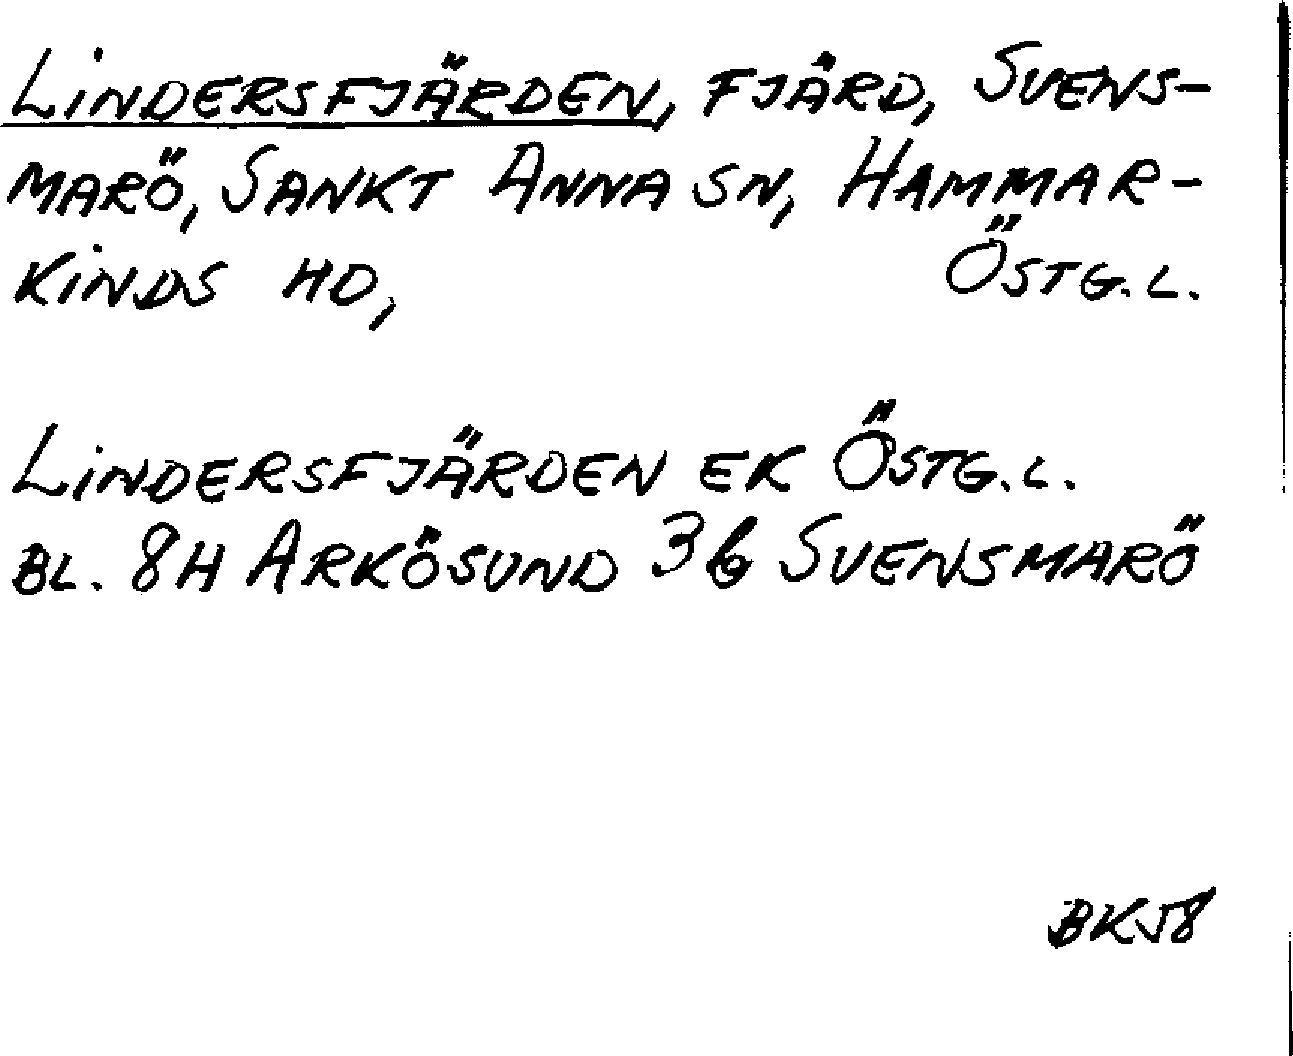 LINDERSFJÄRDEN, FJÄRD, SVENS-
MARÖ, SANKT ANNA SN, HAMMAR-
KINDS HD, ÖSTG.L.
LINDERSFJÄRDEN EK ÖSTG.L.
BL. 8H ARKÖSUND 3b SVENSMARÖ
BK58